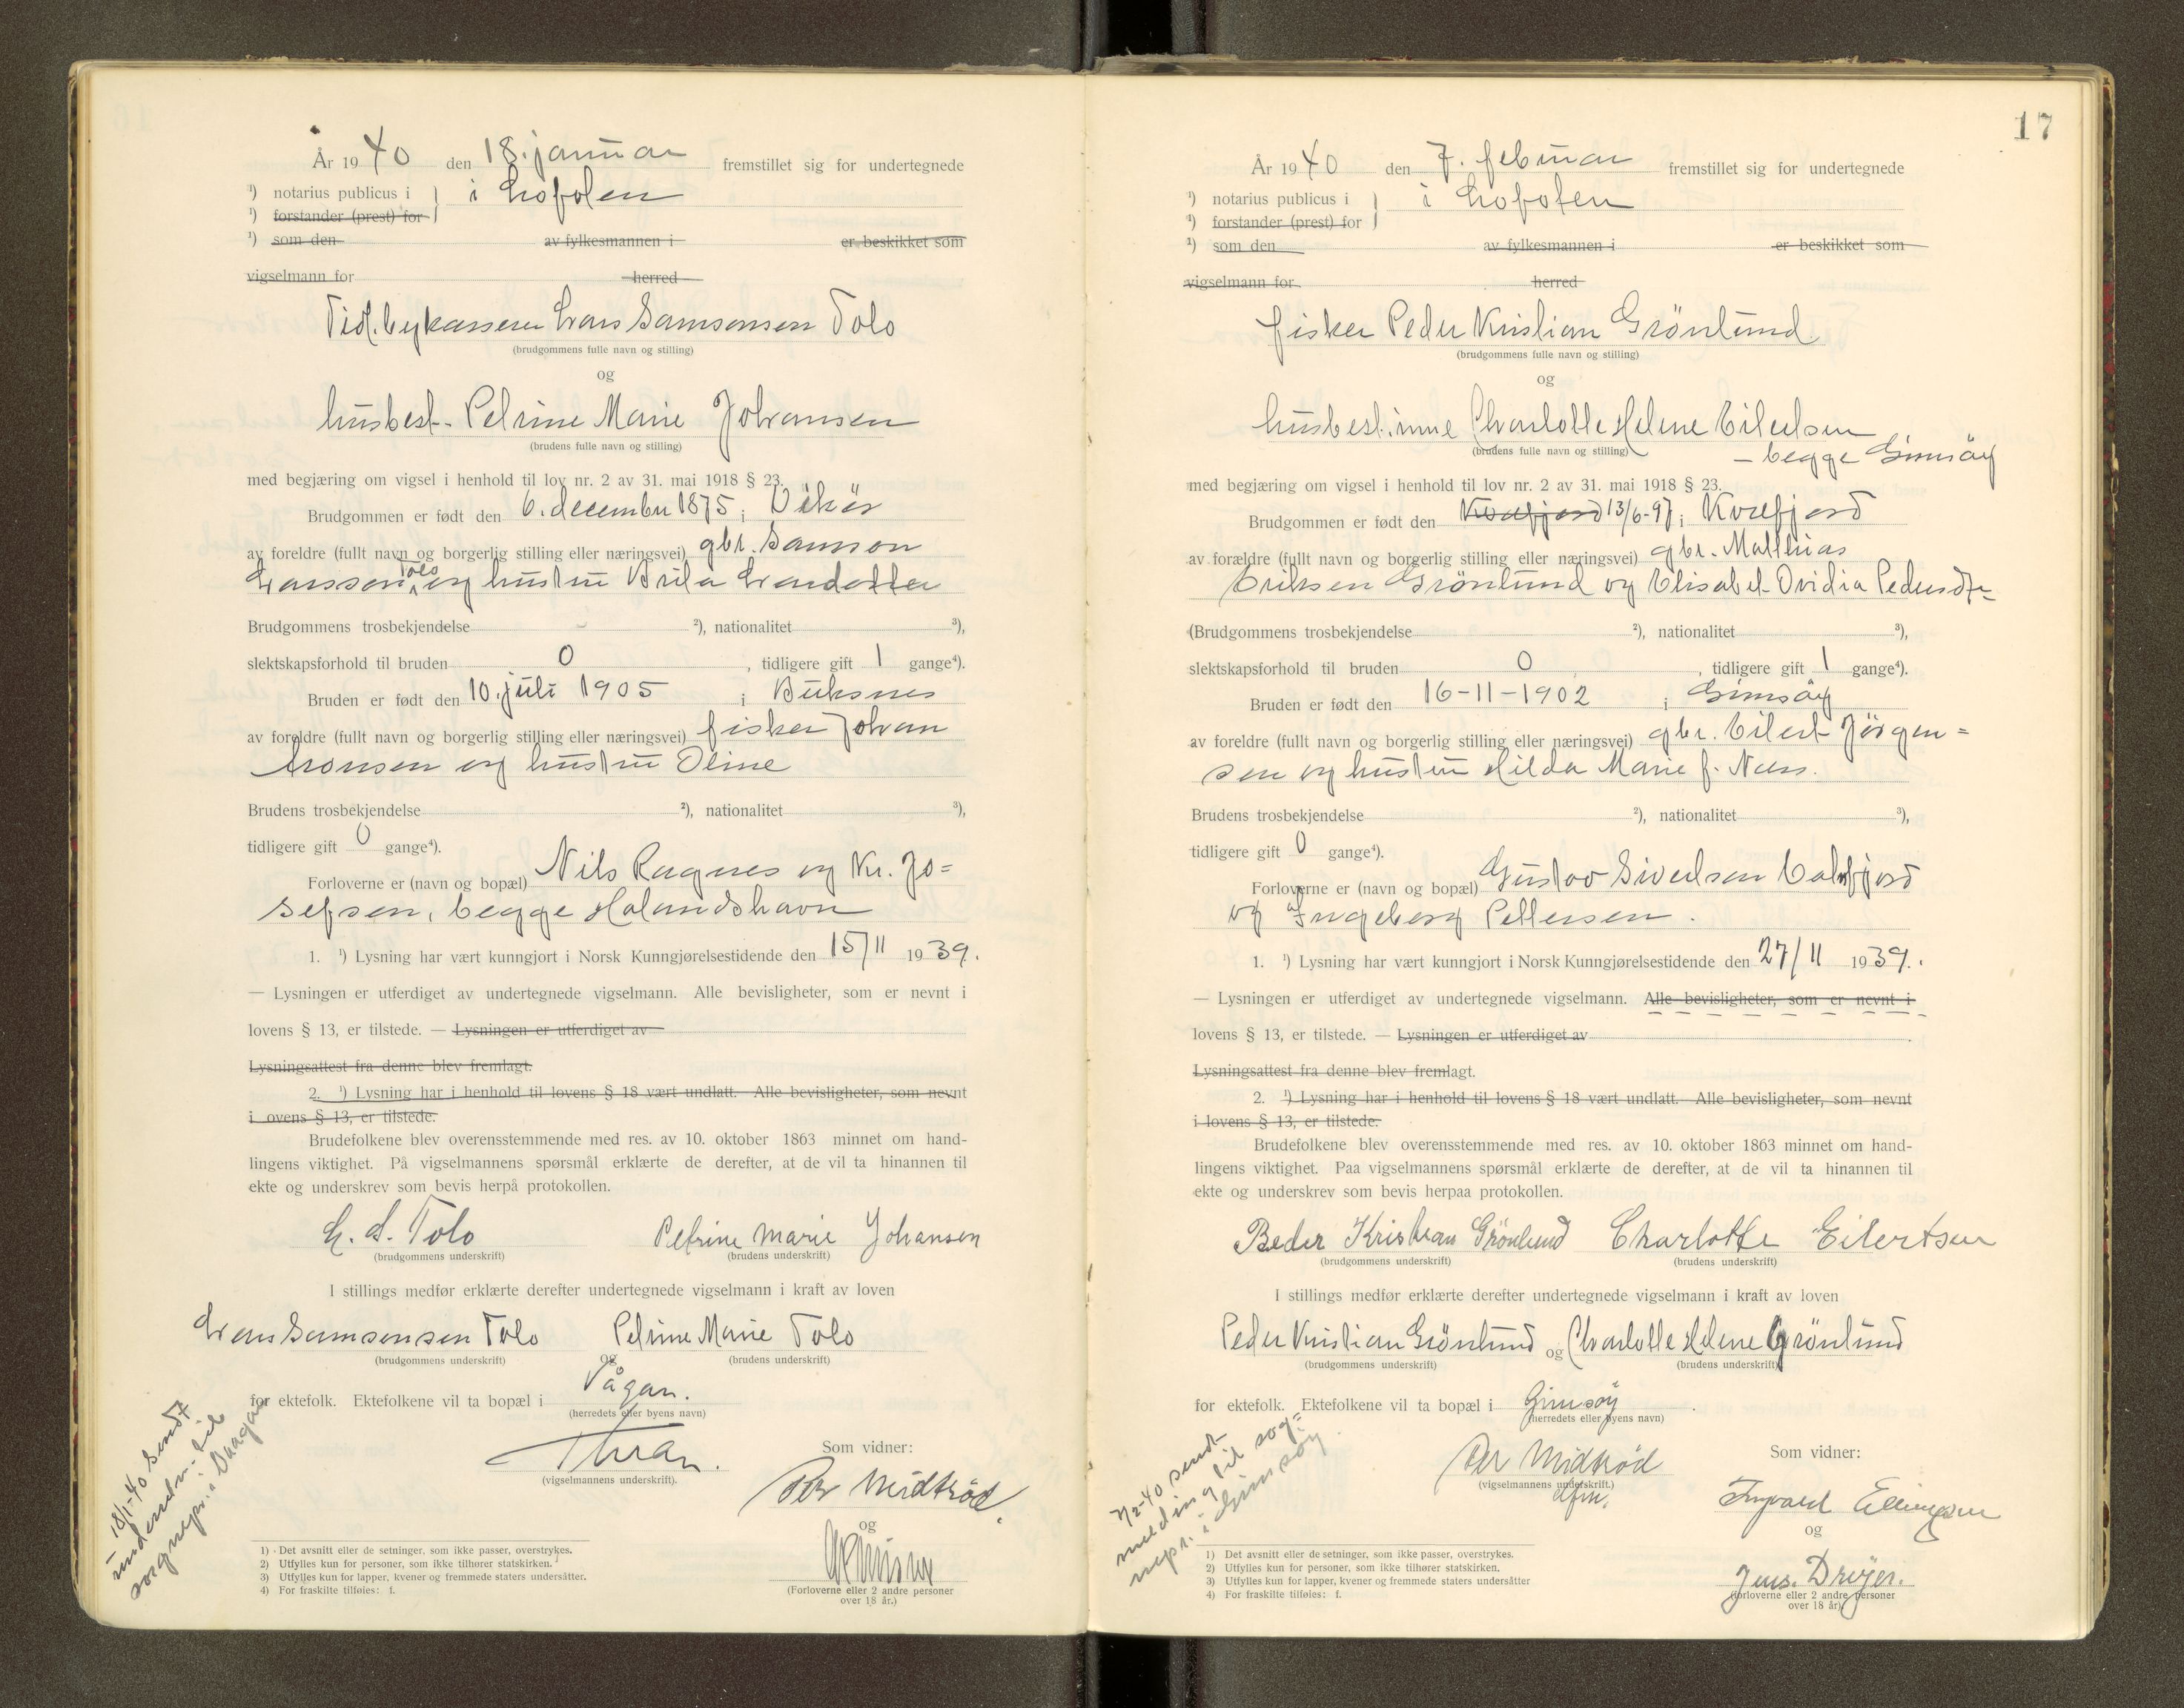 År 1940 den 18. januar fremstillet sig for undertegnede
¹) notarius publicus i } i Lofoten
¹) forstander (prest) for
¹) som den av fylkesmannen i er beskikket som
vigselmann for herred
Tidl. bykasserer Lars Samsonsen Tolo
(brudgommens fulle navn og stilling)
og
husbest. Petrine Marie Johansen
(brudens fulle navn og stilling)
med begjæring om vigsel i henhold til lov nr. 2 av 31. mai 1918 § 23.
Brudgommen er født den 6. december 1875 i Vikör
av foreldre (fullt navn og borgerlig stilling eller næringsvei) gbr. Samson
Larsson Tolo og hustru Brita Larsdatter
Brudgommens trosbekjendelse ²), nationalitet ³),
slektskapsforhold til bruden 0, tidligere gift 1 gange⁴).
Bruden er født den 10. juli 1905 i Buksnes
av foreldre (fullt navn og borgerlig stilling eller næringsvei) fisker Johan
Aronsen og hustru Oline
Brudens trosbekjendelse ²), nationalitet ³),
tidligere gift 0 gange⁴).
Forloverne er (navn og bopæl) Nils Ragnes og Kr. Jo=
sefsen, begge Holandshavn
1. ¹) Lysning har vært kunngjort i Norsk Kunngjørelsestidende den 15/11 1939.
— Lysningen er utferdiget av undertegnede vigselmann. Alle bevisligheter, som er nevnt i
lovens § 13, er tilstede. — Lysningen er utferdiget av
Lysningsattest fra denne blev fremlagt.
2. ¹) Lysning har i henhold til lovens § 18 vært undlatt. Alle bevisligheter, som nevnt
i ovens § 13, er tilstede.
Brudefolkene blev overensstemmende med res. av 10. oktober 1863 minnet om hand-
lingens viktighet. På vigselmannens spørsmål erklærte de derefter, at de vil ta hinannen til
ekte og underskrev som bevis herpå protokollen.
L. S. Tolo Petrine Marie Johansen
(brudgommens underskrift) (brudens underskrift)
I stillings medfør erklærte derefter undertegnede vigselmann i kraft av loven
Lars Samsonsen Tolo og Petrine Marie Tolo
(brudgommens underskrift) (brudens underskrift)
for ektefolk. Ektefolkene vil ta bopæl i Vågan.
(herredets eller byens navn)
Som vidner:
(vigselmannens underskrift).
Per Midtröd
og
(Forloverne eller 2 andre personer
over 18 år.)
18/1-40 sendt
underretn. til
sognepr. i Vaagan
1) Det avsnitt eller de setninger, som ikke passer, overstrykes.
2) Utfylles kun for personer, som ikke tilhører statskirken.
3) Utfylles kun for lapper, kvener og fremmede staters undersåtter.
4) For fraskilte tilføies: f.
17
År 1940 den 7. februar fremstillet sig for undertegnede
¹) notarius publicus i } i Lofoten
¹) forstander (prest) for
¹) som den av fylkesmannen i er beskikket som
vigselmann for herred
fisker Peder Kristian Grönlund
(brudgommens fulle navn og stilling)
og
husbest.inne Charlotte Helene Eilertsen
(brudens fulle navn og stilling) — begge Gimsöy
med begjæring om vigsel i henhold til lov nr. 2 av 31. mai 1918 § 23.
Brudgommen er født den Kvæfjord 13/6-97 i Kvæfjord
av forældre (fullt navn og borgerlig stilling eller næringsvei) gbr. Matthias
Eriksen Grönlund og Elisabet Ovidia Pedersdtr
(Brudgommens trosbekjendelse ²), nationalitet ³),
slektskapsforhold til bruden 0, tidligere gift 1 gange⁴).
Bruden er født den 16-11-1902 i Gimsöy
av foreldre (fullt navn og borgerlig stilling eller næringsvei) gbr. Eilert Jörgen=
sen og hustru Hilda Marie f. Næss.
Brudens trosbekjendelse ²), nationalitet ³),
tidligere gift 0 gange⁴).
Forloverne er (navn og bopæl) Gustav Sivertsen
og Ingeborg Pettersen.
1. ¹) Lysning har vært kunngjort i Norsk Kunngjørelsestidende den 27/11 1939.
— Lysningen er utferdiget av undertegnede vigselmann. Alle bevisligheter, som er nevnt i
lovens § 13, er tilstede. — Lysningen er utferdiget av
Lysningsattest fra denne blev fremlagt.
2. ¹) Lysning har i henhold til lovens § 18 vært undlatt. Alle bevisligheter, som nevnt
i lovens § 13, er tilstede.
Brudefolkene blev overensstemmende med res. av 10. oktober 1863 minnet om hand-
lingens viktighet. Paa vigselmannens spørsmål erklærte de derefter, at de vil ta hinannen til
ekte og underskrev som bevis herpaa protokollen.
Peder Kristian Grönlund Charlotte Eilertsen
(brudgommens underskrift) (brudens underskrift)
I stillings medfør erklærte derefter undertegnede vigselmann i kraft av loven
Peder Kristian Grönlund og Charlotte Helene Grönlund
(brudgommens underskrift) (brudens underskrift)
for ektefolk. Ektefolkene vil ta bopæl i Gimsöy
(herredets eller byens navn)
Per Midtröd Som vidner:
(vigselmannens underskrift.)
Ingvald Ellingsen
og
Jens Dreyer.
(forloverne eller 2 andre personer
over 18 år)
7/2-40 sendt
melding til sog=
nepr. i Gimsöy
1) Det avsnitt eller de setninger, som ikke passer, overstrykes.
2) Utfylles kun for personer, som ikke tilhører statskirken.
3) Utfylles kun for lapper, kvener og fremmede staters undersåtter
4) For fraskilte tilføies: f.